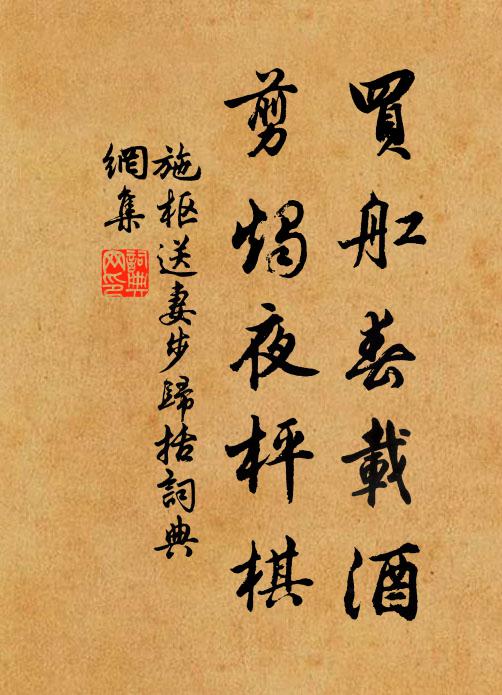 買舡春載酒
剪燭夜枰棋
施枢送妻步歸括詞典
網集
詞典網印